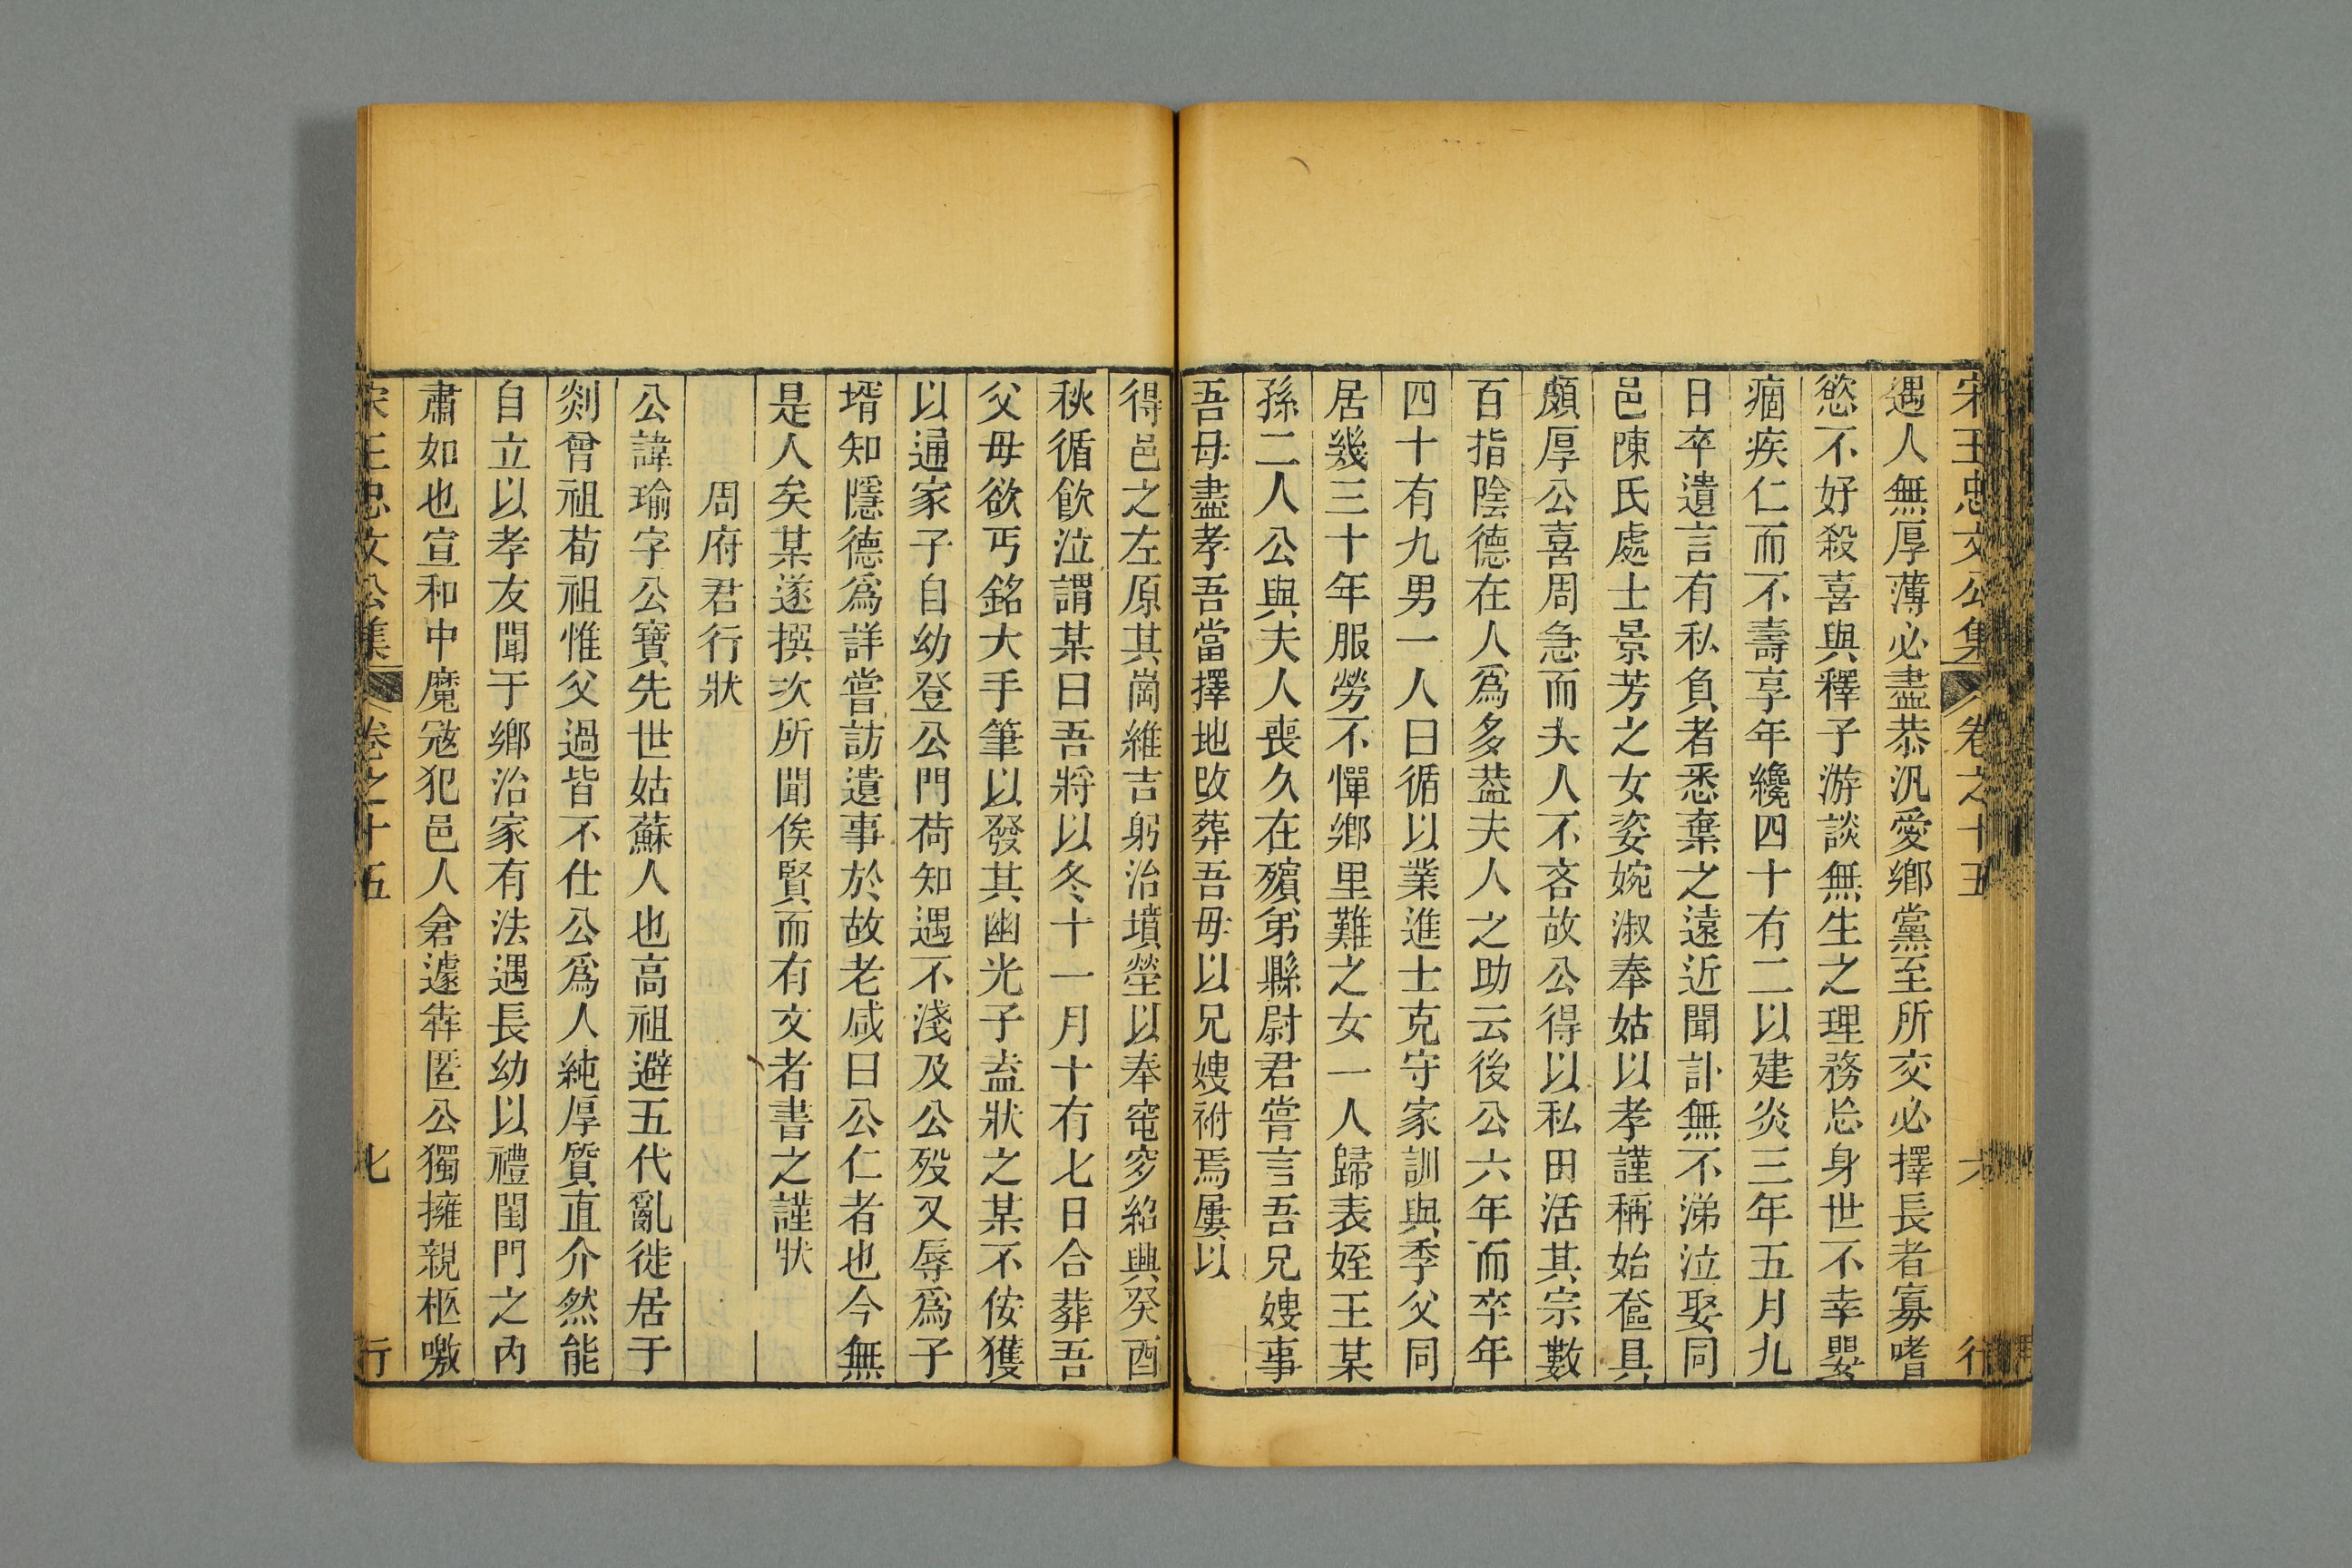 宋王忠文公集 卷之十五 六 行
遇人無厚薄必盡恭汎愛鄉黨至所交必擇長者寡嗜
慾不好殺喜與釋子游談無生之理務忘身世不幸嬰
痼疾仁而不壽享年纔四十有二以建炎三年五月九
日卒遺言有私負者悉棄之遠近聞訃無不涕泣娶同
邑陳氏處士景芳之女姿婉淑奉姑以孝謹稱始奩具
頗厚公喜周急而夫人不吝故公得以私田活其宗數
百指陰德在人爲多葢夫人之助云後公六年而卒年
四十有九男一人曰循以業進士克守家訓與季父同
居幾三十年服勞不憚鄉里難之女一人歸表姪王某
孫二人公與夫人喪久在殯弟縣尉君嘗言吾兄嫂事
吾母盡孝吾當擇地改葬吾母以兄嫂祔焉屢以
得邑之左原其崗維吉躬治墳塋以奉窀穸紹興癸酉
秋循飮泣謂某曰吾將以冬十一月十有七日合葬吾
父母欲丐銘大手筆以發其幽光子盍狀之某不佞獲
以通家子自幼登公門荷知遇不淺及公歿又辱爲子
壻知隱德爲詳嘗訪遺事於故老咸曰公仁者也今無
是人矣某遂撰次所聞俟賢而有文者書之謹狀
周府君行狀
公諱瑜字公寶先世姑蘇人也高祖避五代亂徙居于
剡曾祖荀祖惟父過皆不仕公爲人純厚質直介然能
自立以孝友聞于鄉治家有法遇長幼以禮閨門之內
肅如也宣和中魔寇犯邑人倉遽犇匿公獨擁親柩噭
宋王忠文公集 卷之十五 七 行